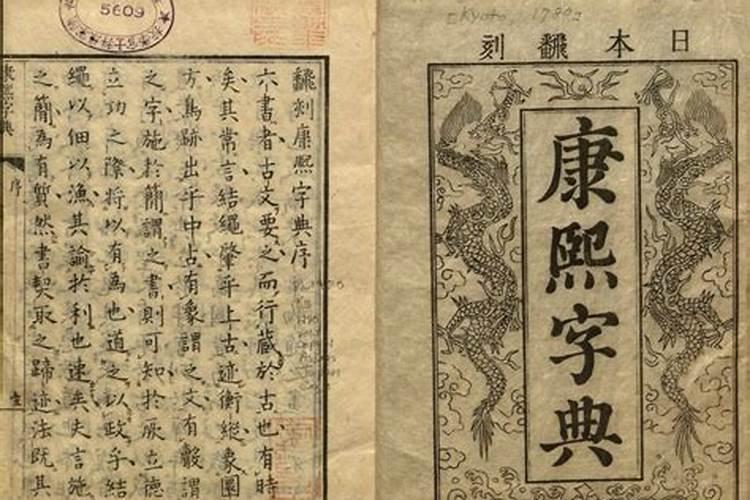 [Kyoto, 1780]
日本飜刻
康熙字典
5609
飜刻康熙字典序
六書者古文要之而行藏於古也有時
矣其常言結繩肇乎上古迹衡縱象圖
方鳥跡出乎中古有象謂之文有謂
之字施於簡謂之書則可知於厥立德
立功之際將以有為也道之以政乎結
繩以佃以漁其諭於利也速矣夫言施
之簡為有質然書契取之蹄迹法既其
康熙字典
序